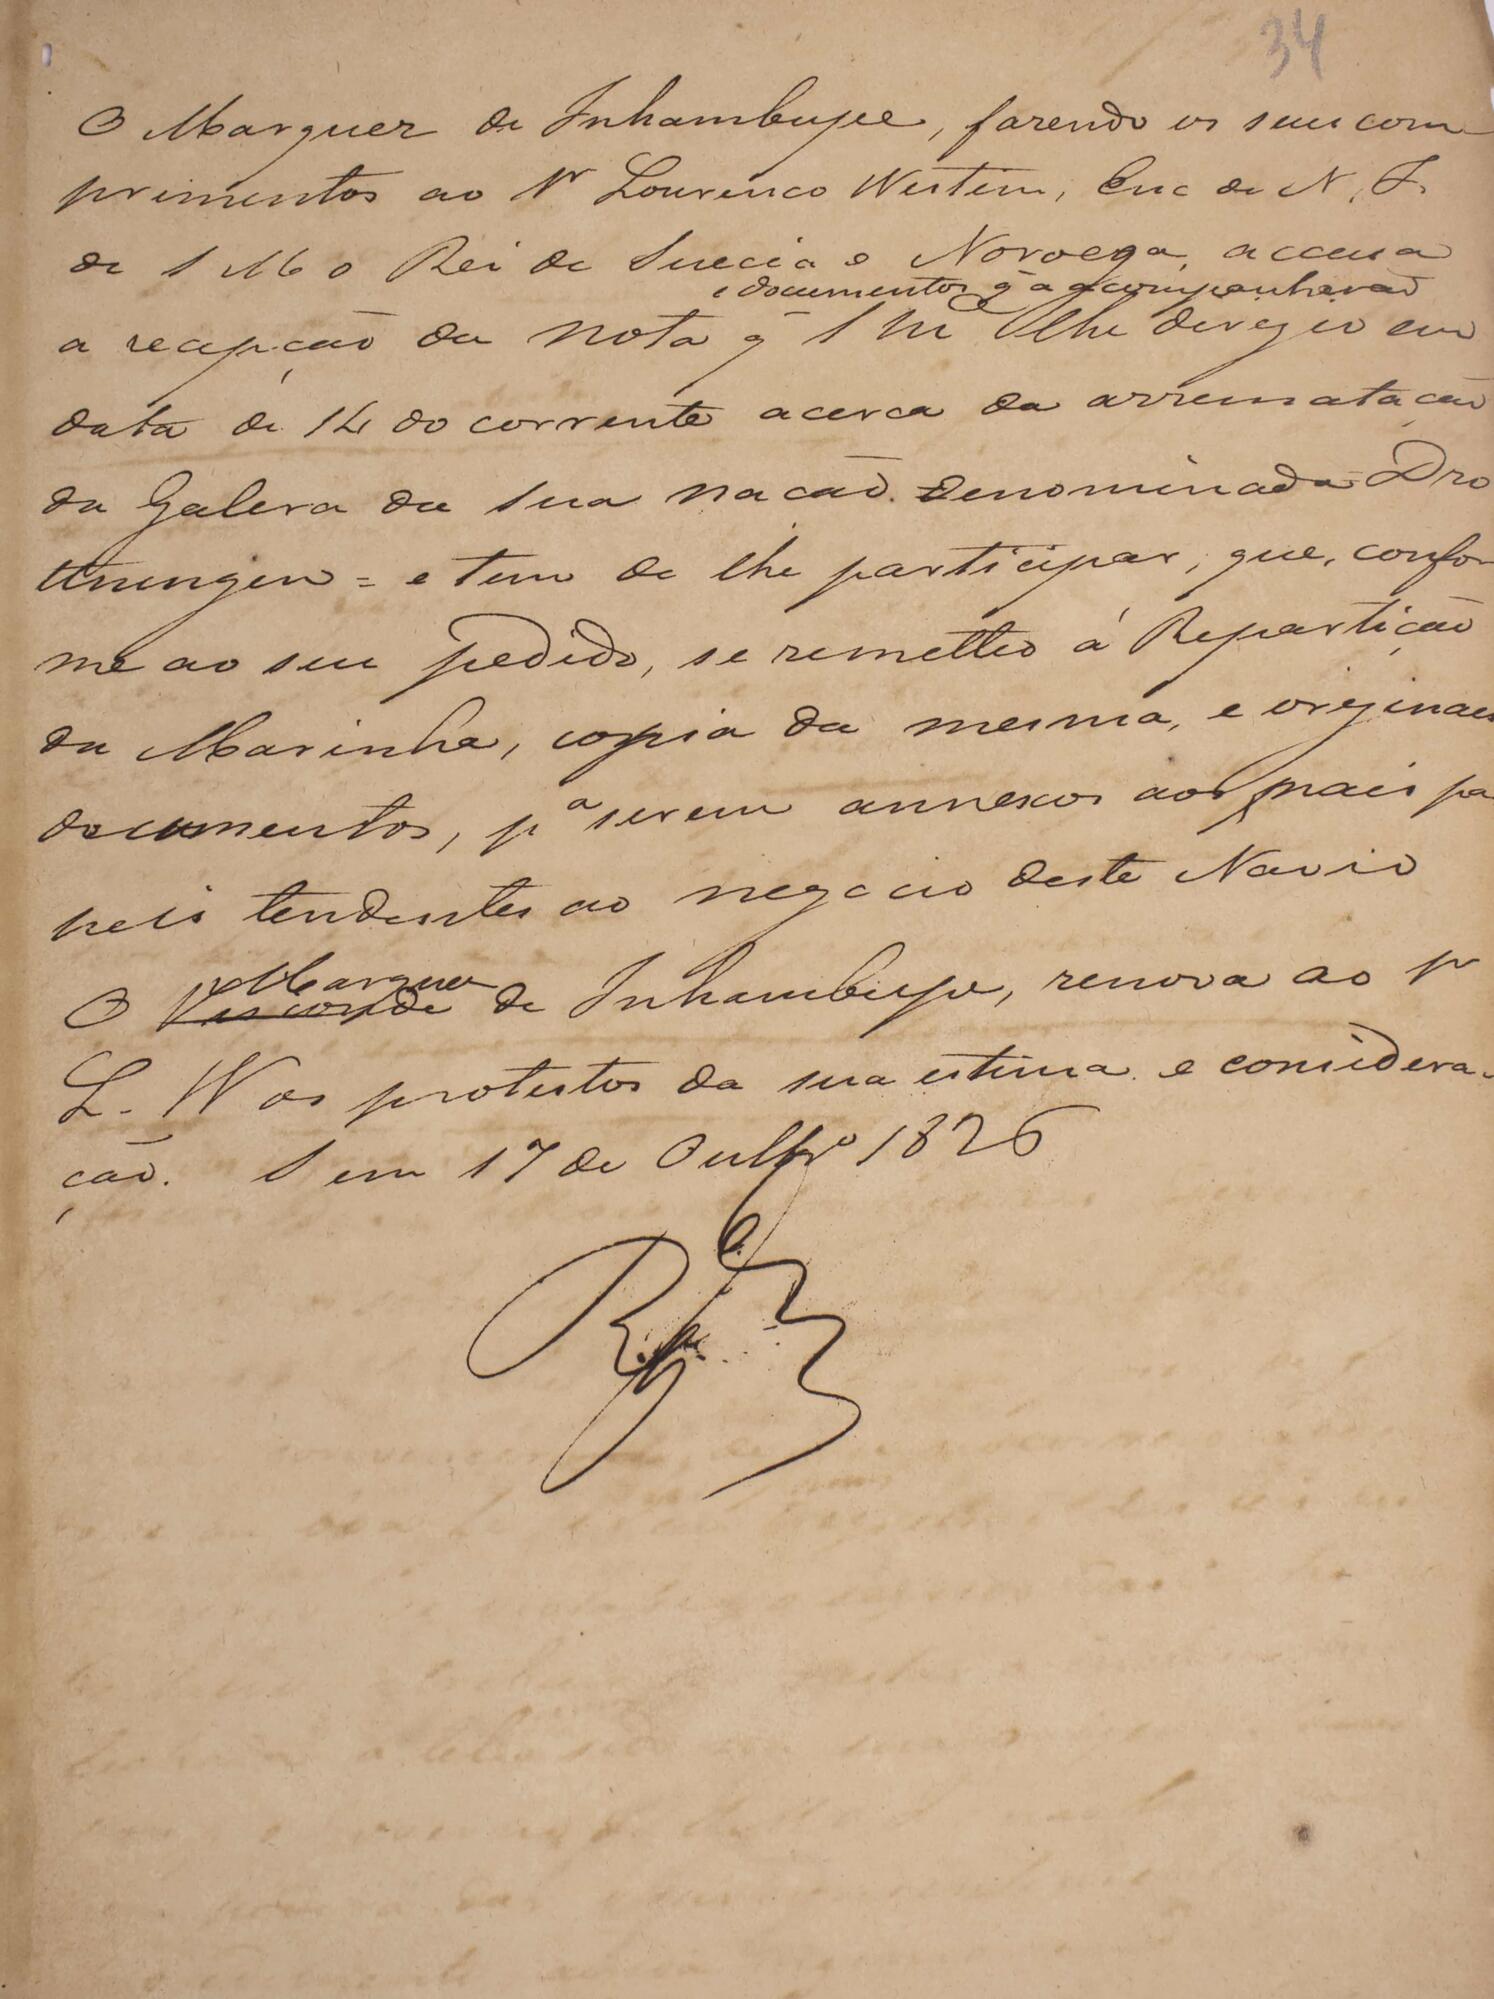 34
O Marquez de Inhambupe, fazendo os seus com
primentos ao Sr Lourenco Westin, Enc de N. F.
de S M o Rei de Suecia e Noroega, accusa
e documentos q̃ a acompanharaõ
a recepçaõ da nota q̃ S Mce lhe deregio em
data de 14 do corrente acerca da arremataçaõ
da Galera da sua nacaõ. denominada = Dro
ttningen = e tem de lhe participar, que, confor
me ao seu pedido, se remetteo á Repartiçaõ
da Marinha, copia da mesma, e originaes
documentos, pa serem annexos aos mais pa
peis tendentes ao negocio deste Navio
Marquez
O Visconde de Inhambupe, renova ao Sr
L. W os protestos da sua estima e considera-
çaõ. S em 17 de Outbro 1826